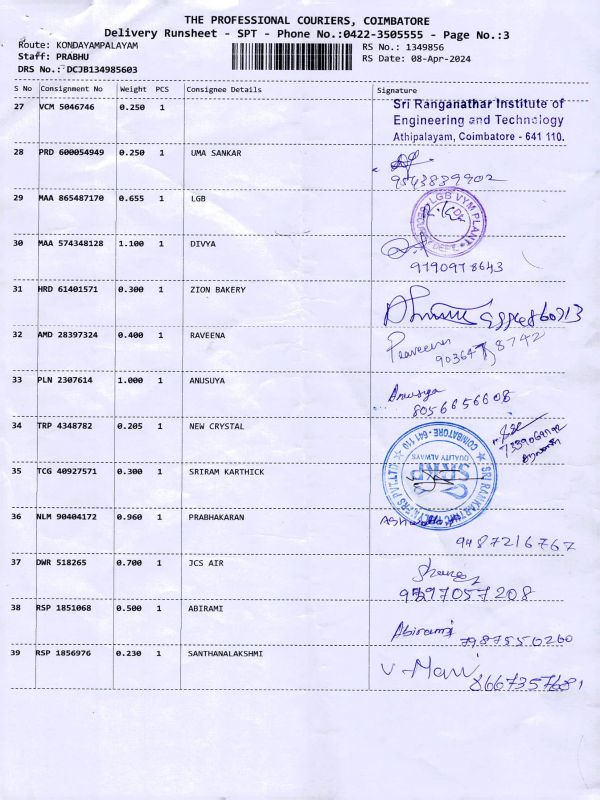 THE PROFESSIONAL COURIERS, COIMBATORE
Delivery Runsheet - SPT - Phone No.:0422-3505555 - Page No.:3
Route: KONDAYAMPALAYAM RS No.: 1349856
Staff: PRABHU RS Date: 08-Apr-2024
DRS No.: DCJB134985603
S No Consignment No Weight PCS Consignee Details Signature
27 VCM 5046746 0.250 1
Sri Ranganathar Institute of
Engineering and Technology
Athipalayam, Coimbatore - 641 110.
28 PRD 600054949 0.250 1 UMA SANKAR
9543839902
29 MAA 865487170 0.655 1 LGB
LGB VYM PLANT
DEPT.
30 MAA 574348128 1.100 1 DIVYA
9790978643
31 HRD 61401571 0.300 1 ZION BAKERY
32 AMD 28397324 0.400 1 RAVEENA
Praveena
33 PLN 2307614 1.000 1 ANUSUYA
Anusuya
8056656608
34 TRP 4348782 0.205 1 NEW CRYSTAL
35 TCG 40927571 0.300 1 SRIRAM KARTHICK
COIMBATORE - 641 110
QUALITY ALWAYS
SRKP
36 NLM 90404172 0.960 1 PRABHAKARAN
9487216767
37 DWR 518265 0.700 1 JCS AIR
38 RSP 1851068 0.500 1 ABIRAMI
Abirami 7987550260
39 RSP 1856976 0.230 1 SANTHANALAKSHMI
V-Mani 8667357681